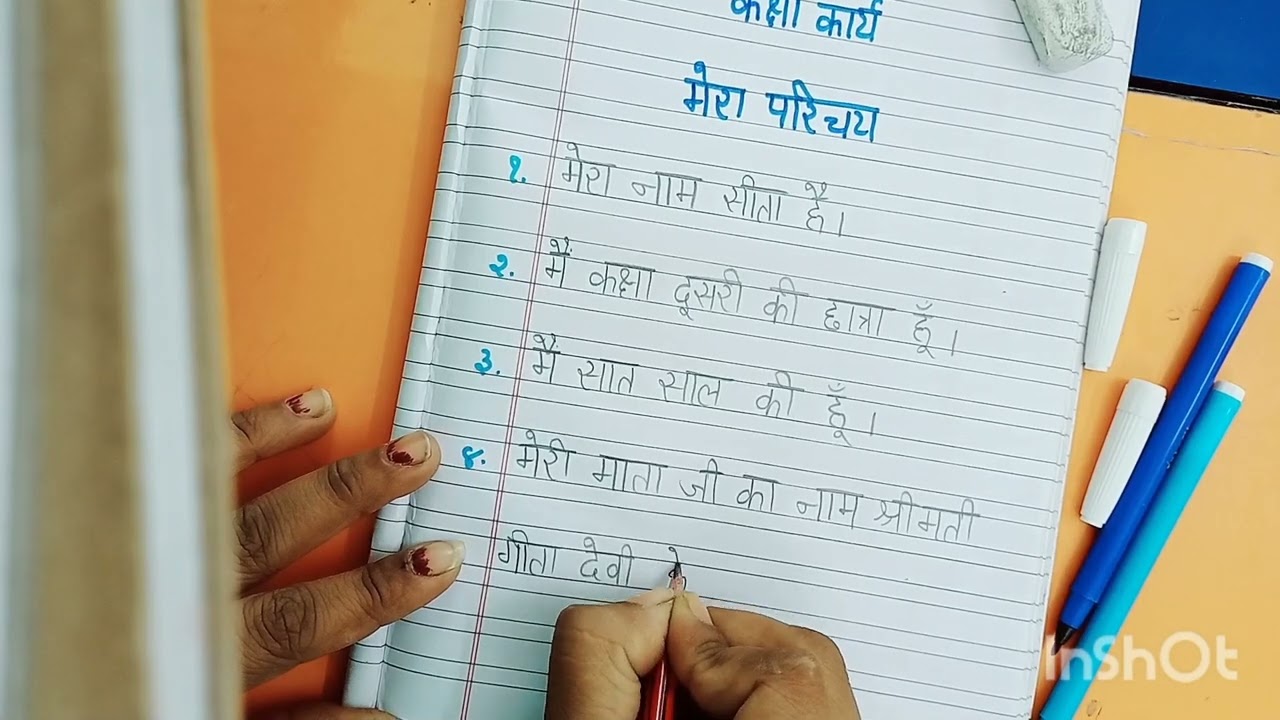 कक्षा कार्य
मेरा परिचय
१. मेरा नाम सीता है।
२. मैं कक्षा दूसरी की छात्रा हूँ।
३. मैं सात साल की हूँ।
४. मेरी माता जी का नाम श्रीमती
गीता देवी
InShOt